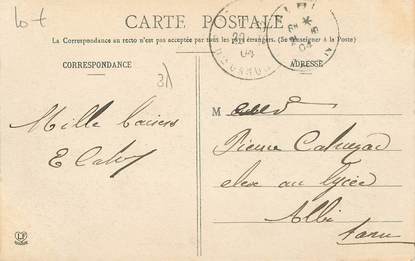 Lot
CARTE POSTALE
La Correspondance au recto n'est pas acceptée par tous les pays étrangers. (Se renseigner à la Poste)
CORRESPONDANCE
ADRESSE
31
04
04
M
Mille baisers
Pierre
eleve au lycée
Albi
Tarn